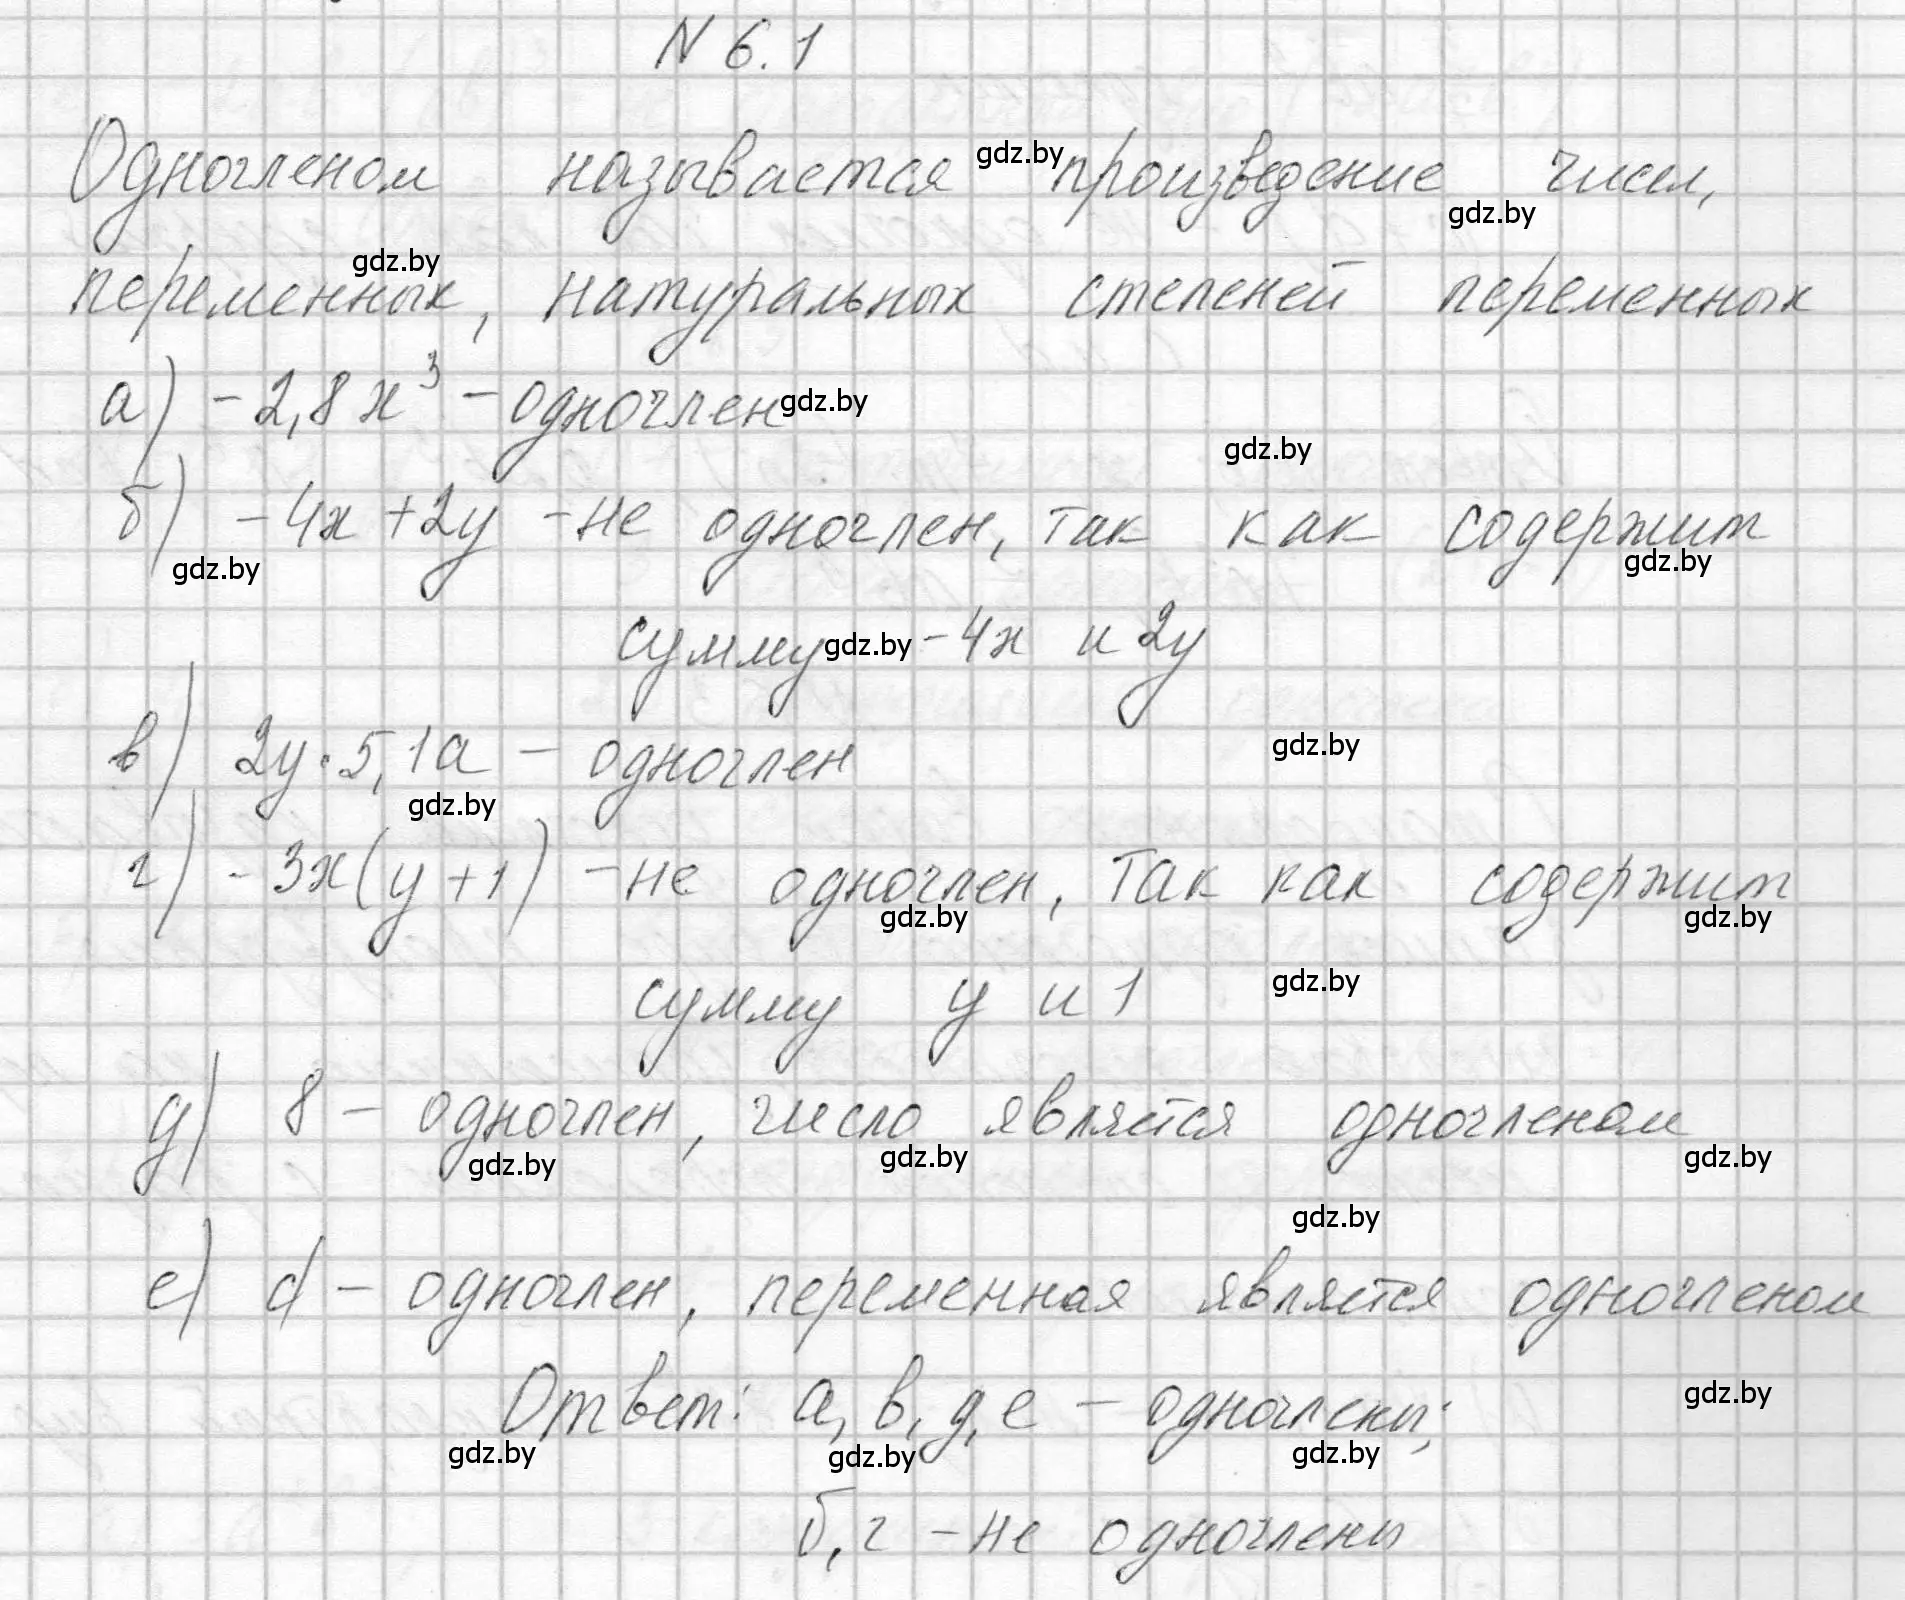 N 6.1
Одночленом называется gdz.by произведение чисел,
gdz.by
gdz.by
переменных, натуральных степеней переменных
а) -2,8x³ - одночлен gdz.by
gdz.by
б) -4x + 2y - не одночлен, так как содержит
gdz.by gdz.by
сумму gdz.by -4x и 2y
в) 2y · 5,1a - одночлен gdz.by
gdz.by
г) -3x(y + 1) - не одночлен, так как содержит
gdz.by gdz.by
сумму y и 1 gdz.by
д) 8 - одночлен, число является одночленом
gdz.by gdz.by gdz.by
gdz.by
е) d - одночлен, переменная является одночленом
Ответ: а, в, д, е - одночлены; gdz.by
gdz.by gdz.by gdz.by
б, г - не одночлены